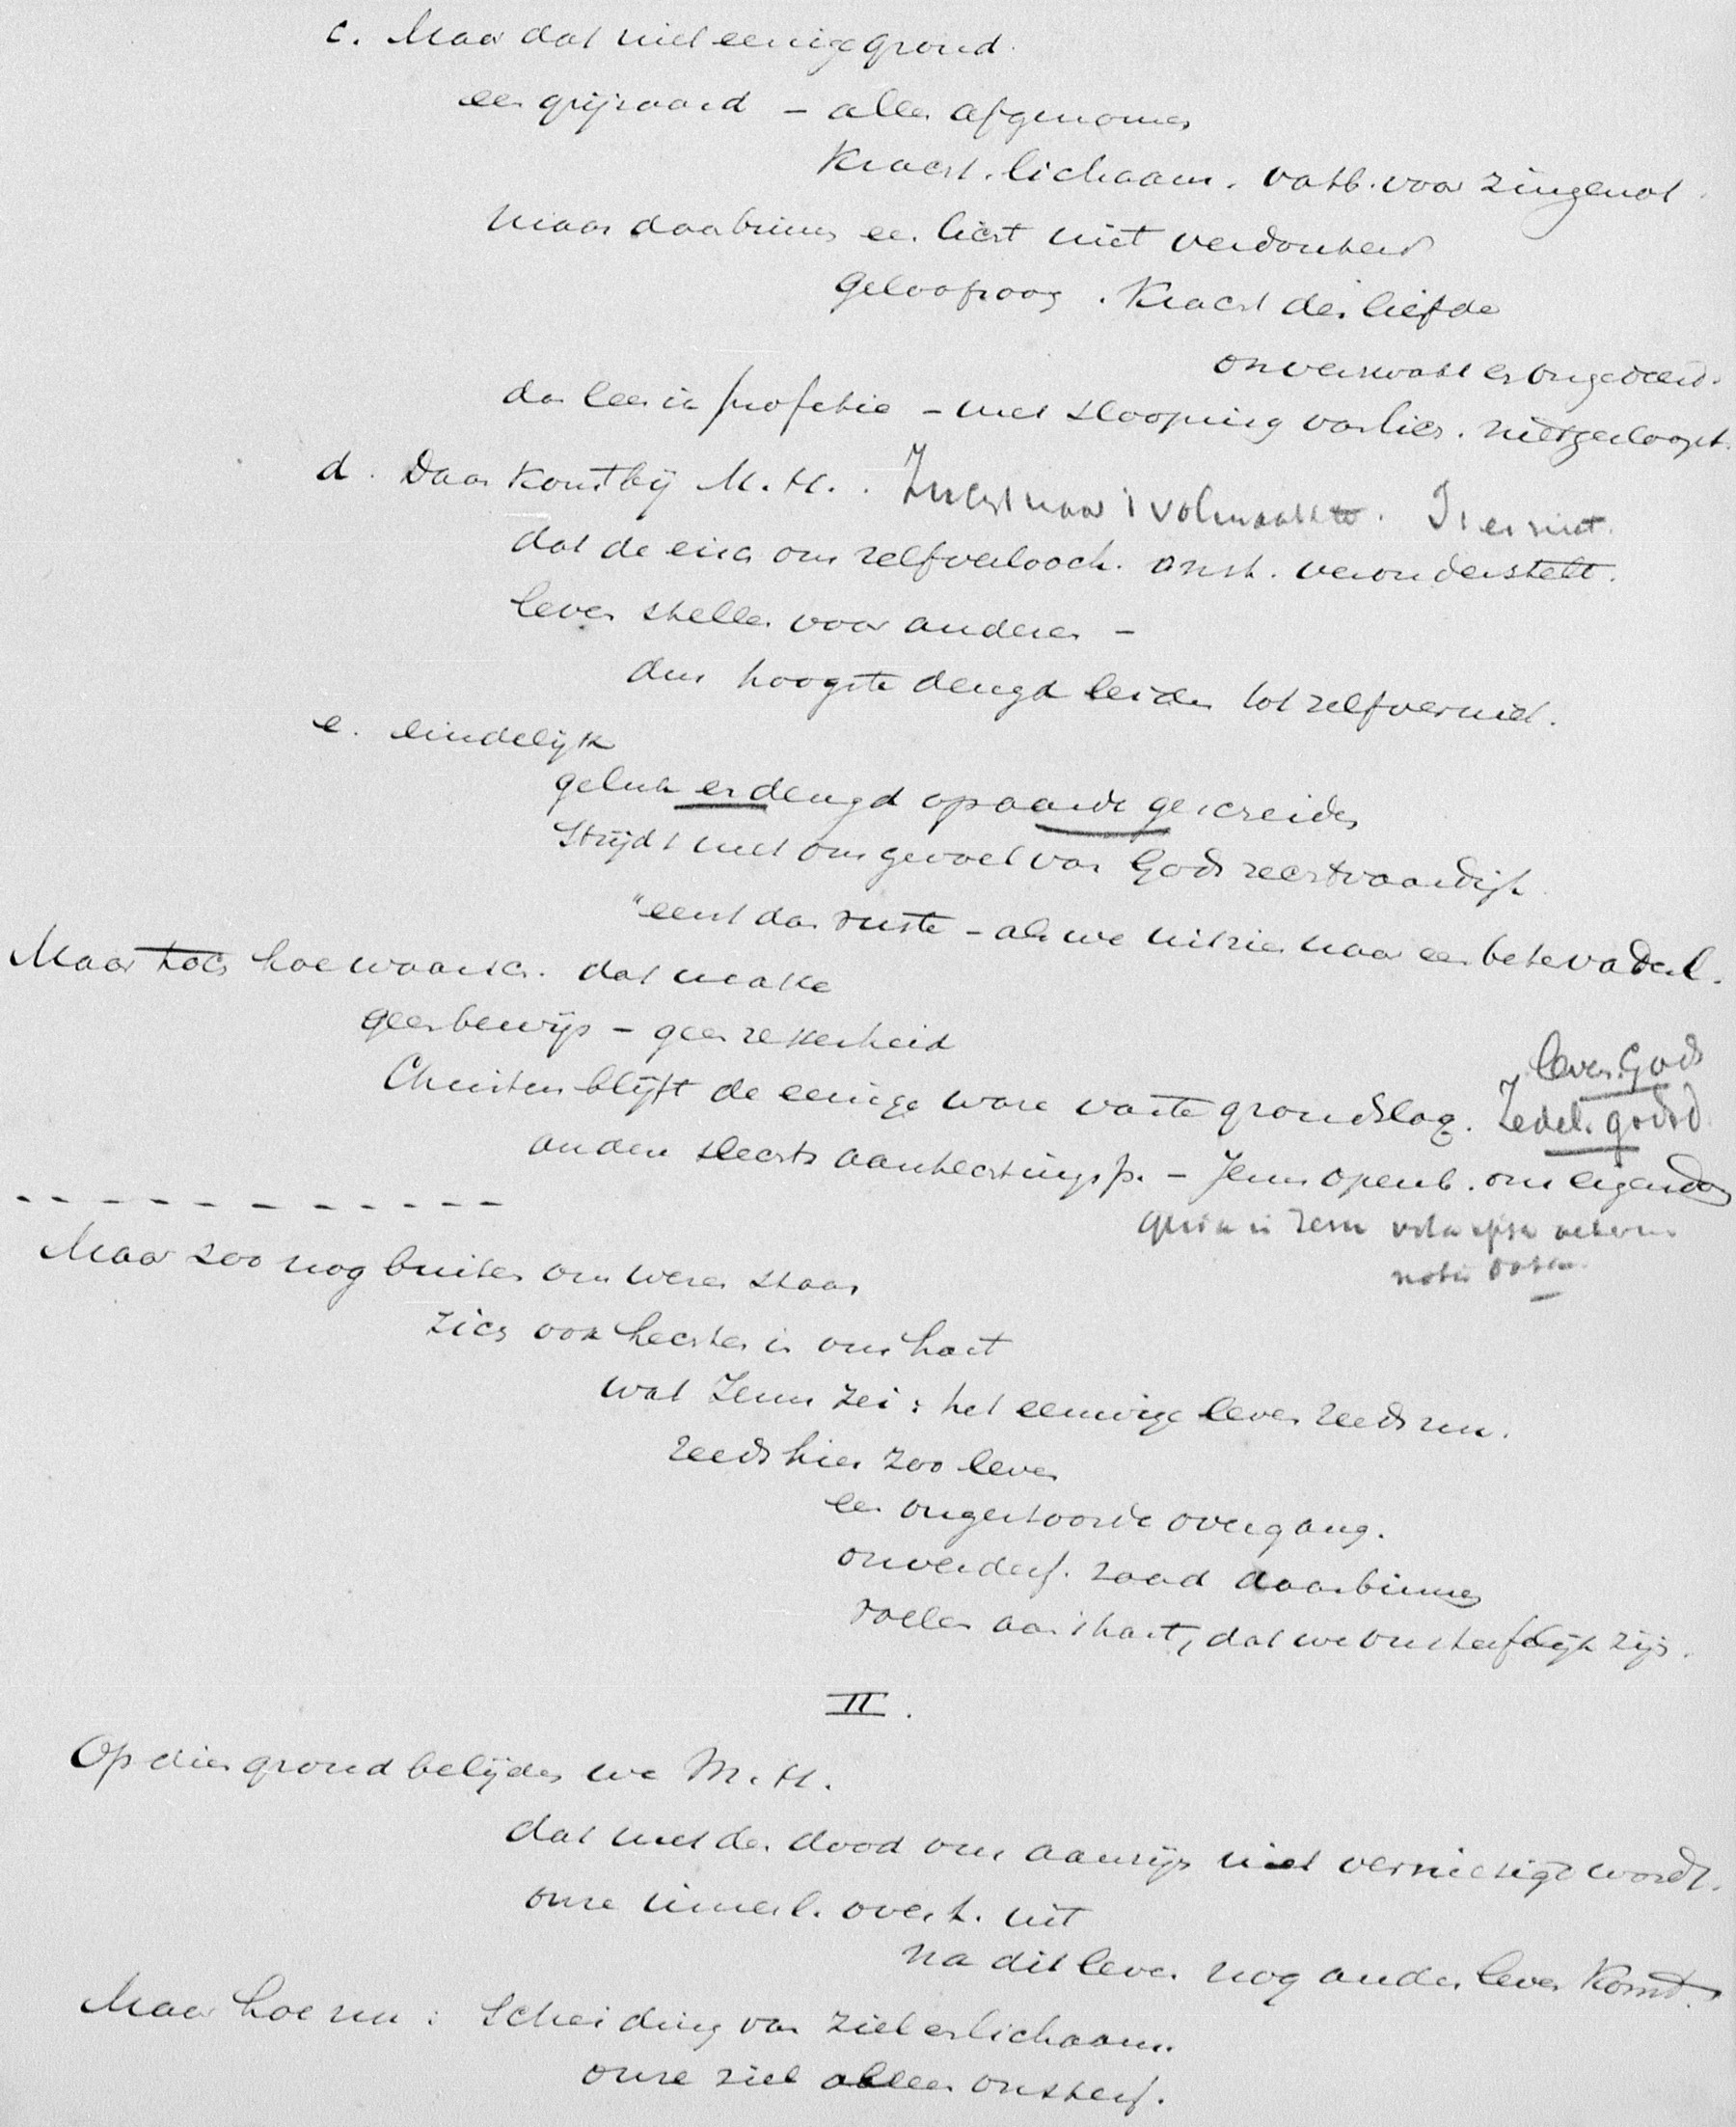 c. Maar dat niet eenige grond.
een grijsaard – alles afgenomen
Kracht. lichaam. vatb. voor zingenot.
maar daarbinnen een licht niet verdonkerd
geloofsoog. Kracht der liefde
onverzwakt en ongedeerd.
dan lees ik profetie – met slooping van lich. niet gesloopt.
d. Daar komt bij M. H. . Zucht naar 't volmaakte. Is er niet.
dat de eisch om zelfverlooch. onst. veronderstelt.
leven stellen voor anderen –
dus hoogste deugd leiden tot zelfverniet.
e. eindelijk
geluk en deugd op aarde gescheiden
Strijdt met ons gevoel van Gods rechtvaardigh.
"eens daar ruste – als we uitzien naar een beter vaderl.
Maar toch hoe waarsch. dat make
geen bewijs – geen zekerheid
Christen blijft de eenige ware vaste grondslag.
leven Gods
Zedel. godsd.
andere slechts aanhechtingsp. – Jezus openb. ons eigendom
in Jezus
Maar zoo nog buiten ons wezen staan
Zich ook hechten in ons hart
wat Jezus zei: het eeuwige leven reeds nu.
reeds hier zoo leven
een ongestoorde overgang.
onverderf. zaad daarbinnen
voelen aan 't hart, dat we onsterfelijk zijn.
II.
Op dien grond belijden we M. H.
dat met den dood ons aanzijn niet vernietigd wordt.
onze innerl. overt. uit
na dit leven nog ander leven komt.
Maar hoe nu: Scheiding van ziel en lichaam.
onze ziel alleen onsterf.